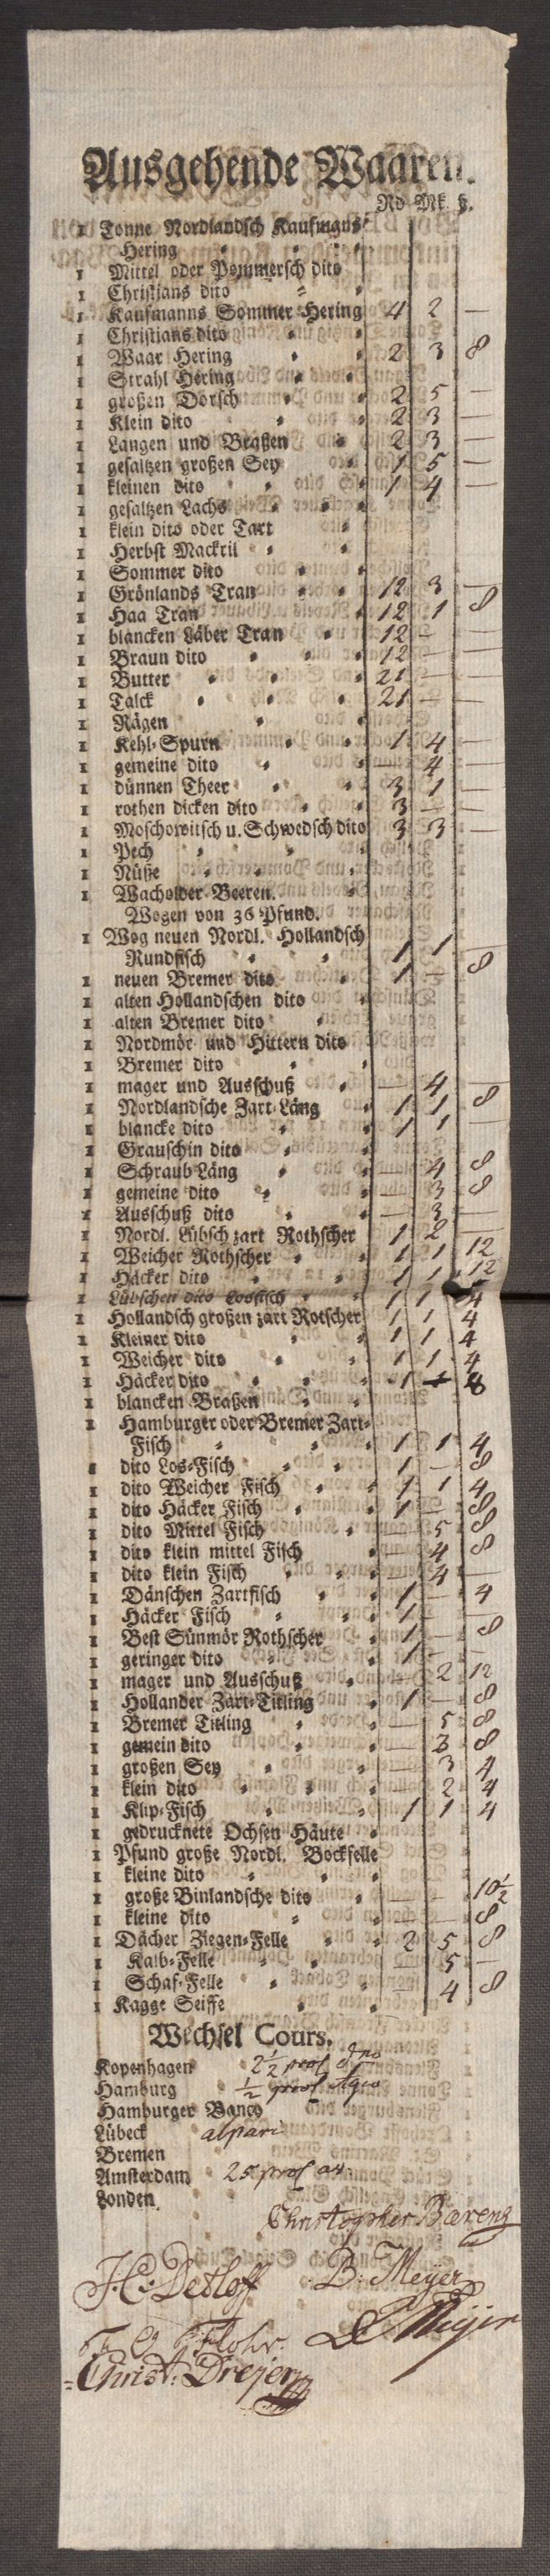 Ausgehende Waaren.
Rd Mk. ß.
1 Tonne Nordlandsch Kaufmans
Hering
1 Mittel oder Pommersch dito
1 Christians dito
1 Kaufmanns Sommer Hering 4 2 —
1 Christians dito
1 Waar Hering 2 3 8
1 Strahl Hering
1 großen Dorsch 2 5 —
1 Klein dito 2 3 —
1 Langen und Braßen 2 3 —
1 gesaltzen großen Sey 1 5 —
1 kleinen dito 1 4 —
1 gesaltzen Lachs
1 klein dito oder Tart
1 Herbst Mackril
1 Sommer dito
1 Grönlands Tran 12 3 —
1 Haa Tran 12 1 8
1 blancken Läber Tran 12 — —
1 Braun dito 12 — —
1 Butter 21 — —
1 Talck 21 — —
1 Rägen
1 Kehl-Spurn 1 4 —
1 gemeine dito — 4 —
1 dünnen Theer 3 1 —
1 rothen dicken dito 3 — —
1 Moschowitsch u. Schwedsch dito 3 3 —
1 Pech
1 Nüße
1 Wacholder Beeren.
Wogen von 36 Pfund.
1 Wog neuen Nordl. Hollandsch
Rundfisch 1 1 —
1 neuen Bremer dito 1 — 8
1 alten Hollandschen dito
1 alten Bremer dito
1 Nordmör und Hittern dito
1 Bremer dito
1 mager und Ausschuß — 4 —
1 Nordlandsche Zart-Läng 1 1 8
1 blancke dito 1 1 —
1 Grauschin dito
1 Schraub Läng — 4 8
1 gemeine dito — 3 8
1 Ausschuß dito — 3 —
1 Nordl. Lübsch zart Rothscher 1 2 —
1 Weicher Rothscher 1 1 12
1 Häcker dito 1 1 12
1 Lübschen dito Losfisch 1 1 4
1 Hollandsch großen zart Rotscher 1 1 4
1 Kleiner dito 1 1 4
1 Weicher dito 1 1 4
1 Häcker dito 1 — 8
1 blancken Braßen
1 Hamburger oder Bremer Zart-
Fisch 1 1 4
1 dito Los-Fisch 1 — 8
1 dito Weicher Fisch 1 1 4
1 dito Häcker Fisch 1 — 8
1 dito Mittel Fisch — 5 8
1 dito klein mittel Fisch — 4 8
1 dito klein Fisch — 4 —
1 Dänschen Zartfisch 1 — 4
1 Häcker Fisch 1 —
1 Best Sünmör Rothscher 1 — 8
1 geringer dito 1 —
1 mager und Ausschuß — 2 12
1 Hollander Zart-Titling 1 — 8
1 Bremer Titling — 5 8
1 gemein dito — 3 8
1 großen Sey — 3 4
1 klein dito — 2 4
1 Klip-Fisch 1 1 4
1 gedrucknete Ochsen Häute
1 Pfund große Nordl. Bockfelle
1 kleine dito
1 große Binlandsche dito — — 10½
1 kleine dito — — 8
1 Dächer Ziegen-Felle 2 5 8
1 Kalb-Felle — 5 —
1 Schaf-Felle — 4 8
1 Kagge Seiffe
Wechsel Cours.
Kopenhagen 2½
Hamburg ½ Agio
Hamburger Banco
Lübeck alpari
Bremen
Amsterdam 25
Londen
Christopher Barens
H: Detloff B: Meÿer
Flohr. Meijer
Christ: Dreÿer